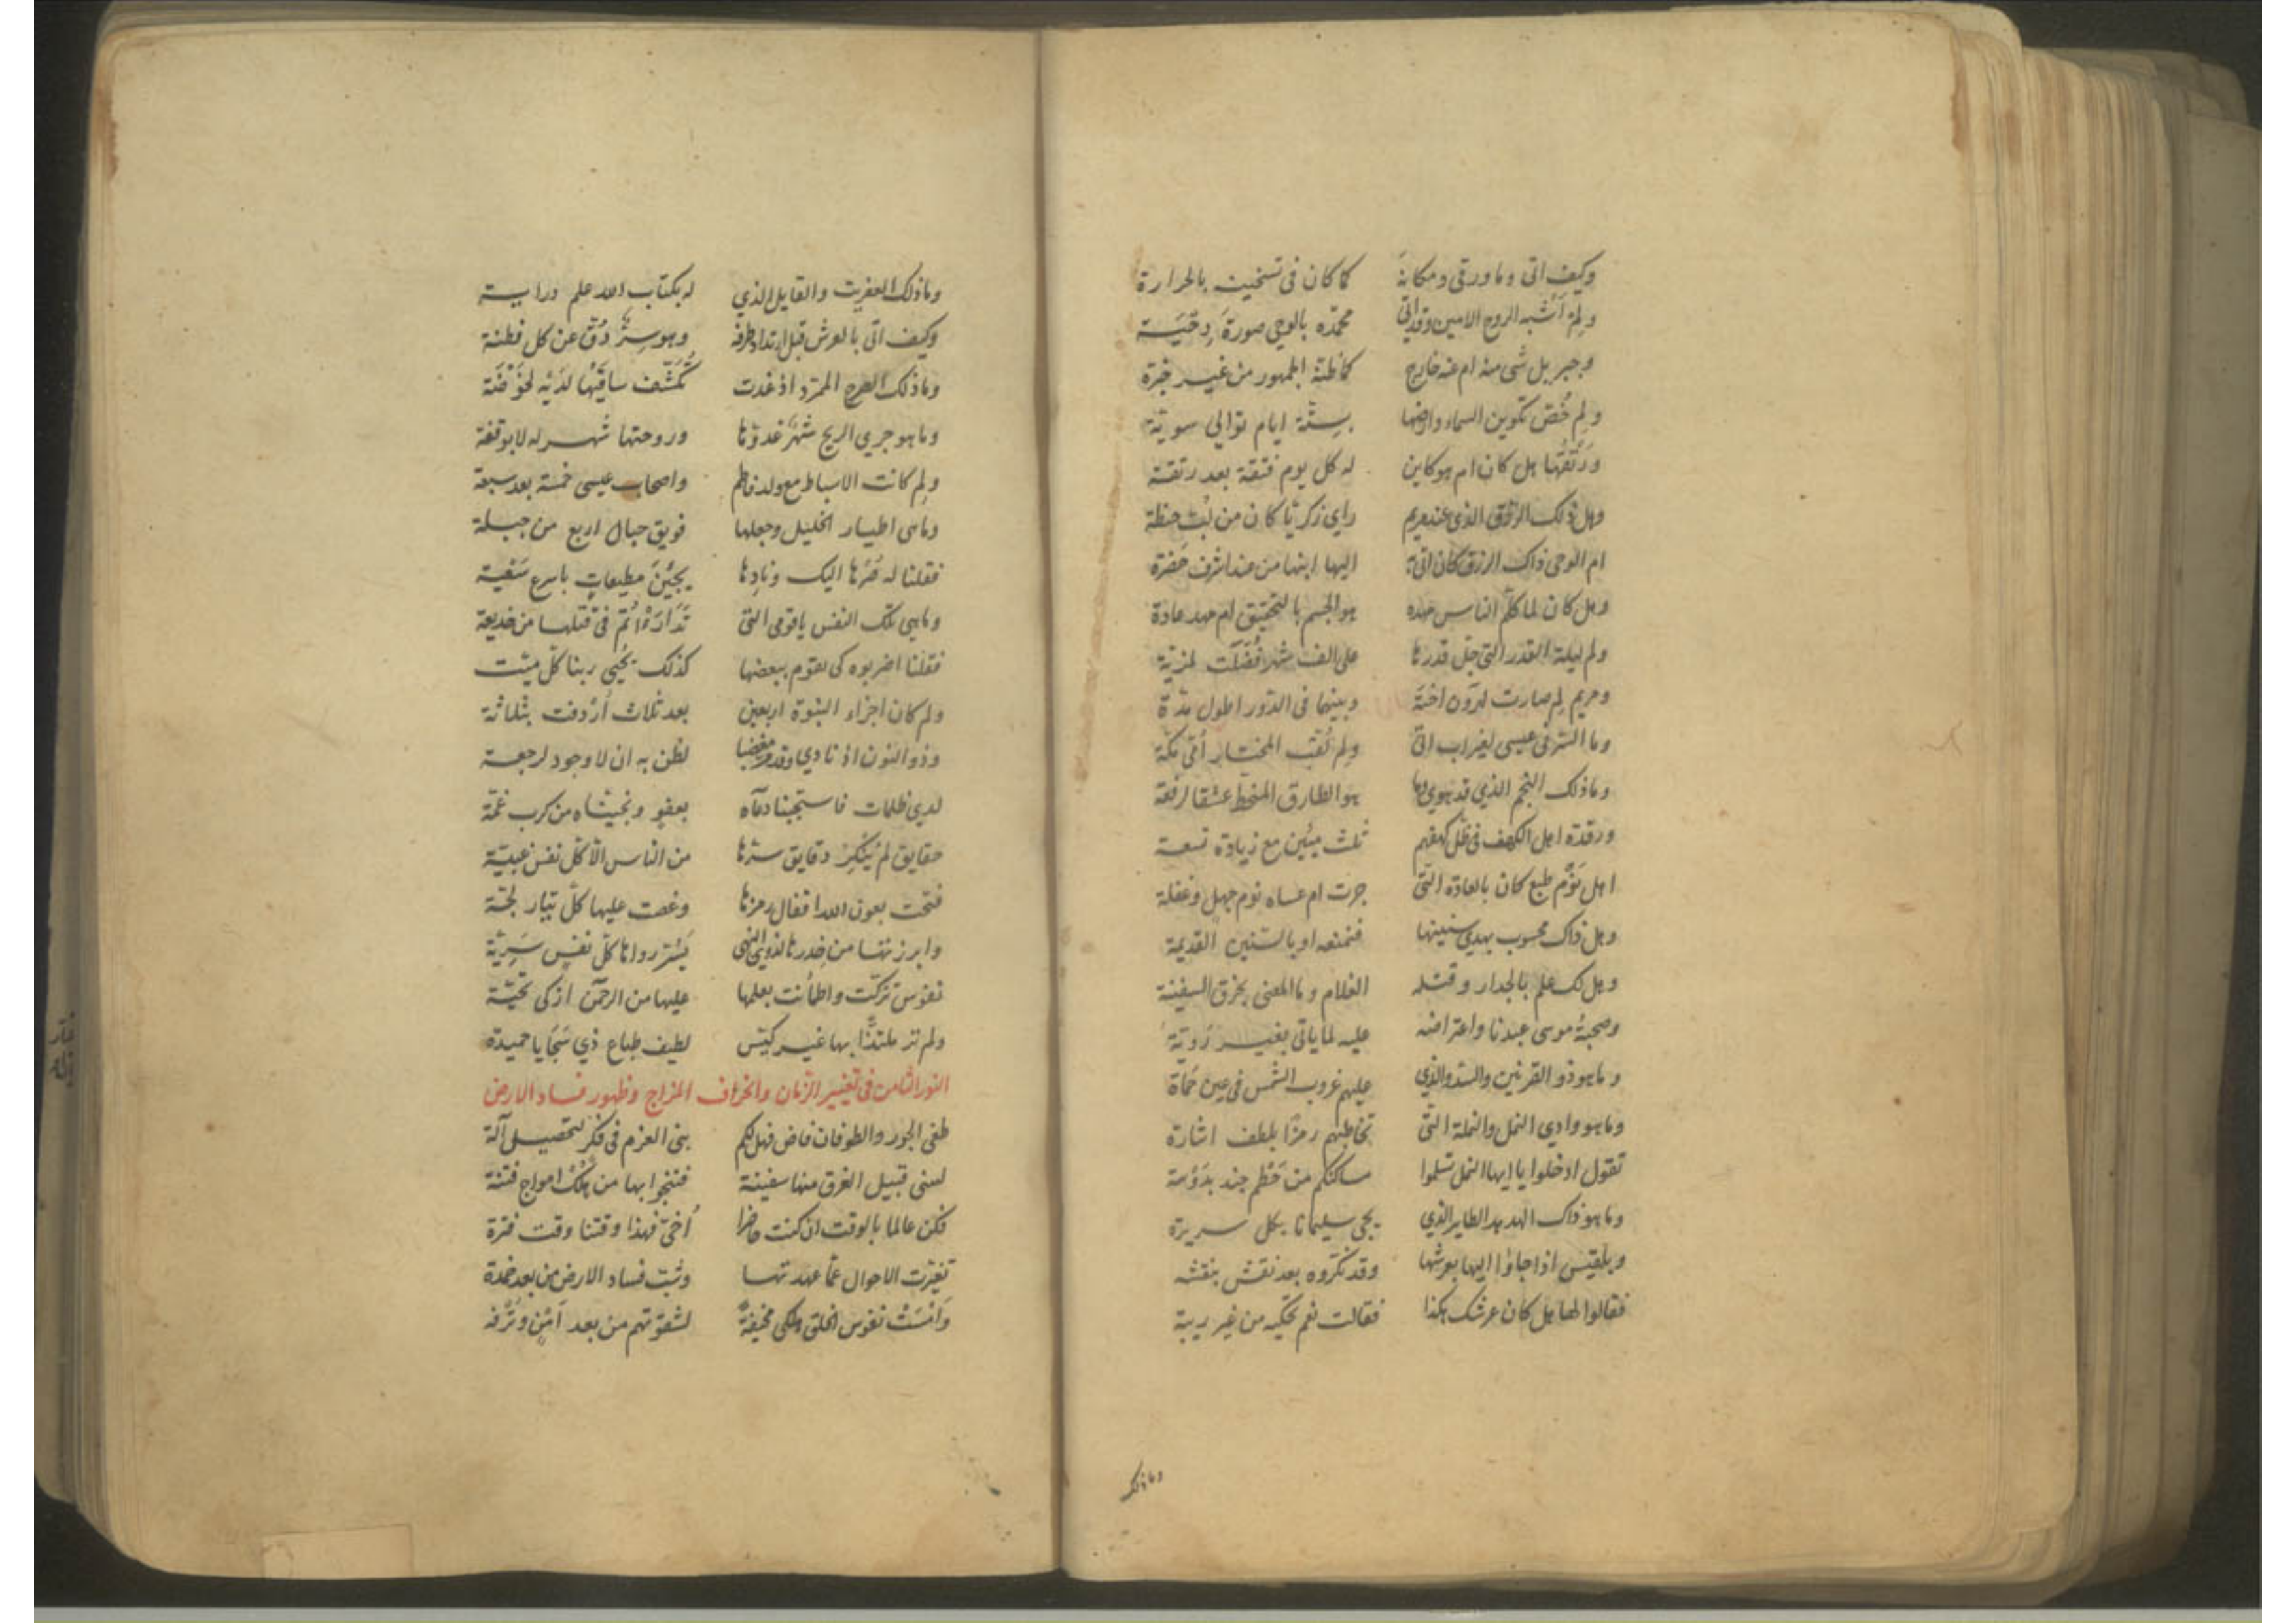 وكيف اتى وما ورقى ومكانة كما كان في تسخيت بالحرارة
ولم اشبه الروح الامين وقد اتى محمده بالوحي صورة دحية
وجبريل شى منه ام عنه خارج كما ظنه الجمهور من غير خبرة
ولم خص تكوين السماء وارضها بستة ايام توالي سوية
ورتقها هل كان ام هو كاين له كل يوم فتقة بعد رتقة
وهل ذلك الرزق الذي عند مريم راى زكريا كان من لب حنطة
ام الوحى ذاك الرزق كان اتى به اليها ابنها من عند اشرف حضرة
وهل كان لما كلم الناس مهده هو الجسم بالتحقيق ام مهد عادة
ولم ليلة القدر التى جل قدرها على الف شهر فضلت لمزية
ومريم لم صارت لهرون اخته وبينهما في الدور اطول مدة
وما السر في عيسى لغير اب اتى ولم لقب المختار امي مكة
وما ذلك النجم الذي قد هوي وما هو الطارق المنحط عشقا لرفعة
ورقدة اهل الكهف في ظل كهفهم ثلث مئين مع زيادة تسعة
اهل نوم طبع كان بالعادة التى جرت ام عساه نوم جهل وغفلة
وهل ذاك محسوب بهدي سنينها فنمنعه او بالسنين القديمة
وهل لك علم بالجدار وقتله الغلام وما المعنى بخرق السفينة
وصحبة موسى عبدنا واعتراضه عليه لما ياتى بغير روية
وما هو ذو القرنين والسد والذي عليهم غروب الشمس في عين حماة
وما هو وادي النمل والنملة التى تخاطبهم رمزا بلطف اشارة
تقول ادخلوا يا ايها النمل تسلموا مساكنكم من حطم جند بدوسة
وما هو ذاك الهدهد الطاير الذي يجى سليمانا بكل سريرة
وبلقيس اذ جاؤا اليها بعرشها وقد نكروه بعد نقش بنقشه
فقالوا لها هل كان عرشك هكذا فقالت نعم تحكيه من غير ريبة
وما ذلك
وما ذلك العفريت والقايل الذي له بكتاب الله علم دراية
وكيف اتى بالعرش قبل ارتداد طرفه وهو سر دق عن كل فطنة
وما ذلك الصرح الممرد اذ غدت تكشف ساقيها لديه لخوضة
وما هو جري الريح شهر غدوها وروحتها شهر له لا بوقفة
ولم كانت الاسباط مع ولد فاطم واصحاب عيسى خمسة بعد سبعة
وما هى اطيار الخليل وجعلها فويق جبال اربع من جبلة
فقلنا له صرها اليك ونادها يجيئن مطيعات باسرع سعية
وما هي تلك النفس يا قومى التى تدارؤاتم في قتلها من خديعة
فقلنا اضربوه كى يقوم ببعضها كذلك يحيى ربنا كل ميت
ولم كان اجزاء النبوة اربعين بعد ثلاث أردفت بثلاثة
وذو النون اذ نادي وقد مر مغضبا لظن به ان لا وجود لرجعة
لدي ظلمات فاستجبنا دعآه بعفو ونجيناه من كرب غمة
حقايق لم ينكر دقايق سرها من الناس الا كل نفس غبية
فتحت بعون الله اقفال رمزها وغصت عليها كل تيار لجة
وابرزتها من خدرها لذوي النهى كل نفس سرية
نفوس تزكت واطمأنت بعلمها عليها من الرحمن ازكى تحية
ولم تر ملتذا بها غير كيس لطيف طباع ذي سجايا حميدة
النور الثامن في تغيير الزمان وانحراف المزاج وظهور فساد الارض
طغى الجور والطوفان فاض فهل لكم بنى العزم في فكر لتحصيل آلة
لسنى قبيل الغرق منها سفينة فتنجوا بها من هلك امواج فتنة
فكن عالما بالوقت ان كنت حاضرا أخي فهذا وقتنا وقت فترة
تغيرت الاحوال عما عهدتها وشبت فساد الارض من بعد خمدة
وامست نفوس الخلق وهي مخيفة لشقوتهم من بعد امن وترفه